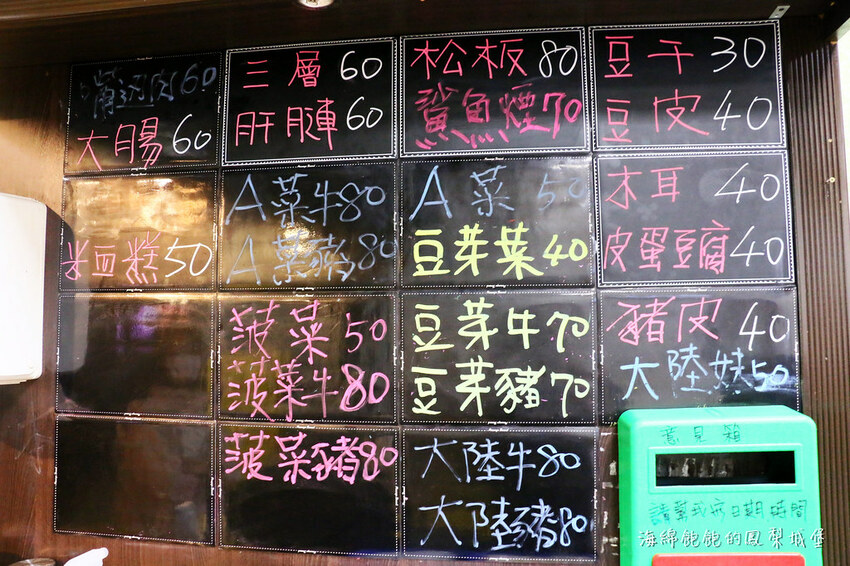 嘴边肉60
大腸60
三層60
肝腱60
松板80
鯊魚煙70
豆干30
豆皮40
米血糕50
A菜牛80
A菜豬80
A菜50
豆芽菜40
木耳40
皮蛋豆腐40
菠菜50
菠菜牛80
豆芽牛70
豆芽豬70
豬皮40
大陸妹50
菠菜豬80
大陸牛80
大陸豬80
意見箱
海綿飽飽的鳳梨城堡